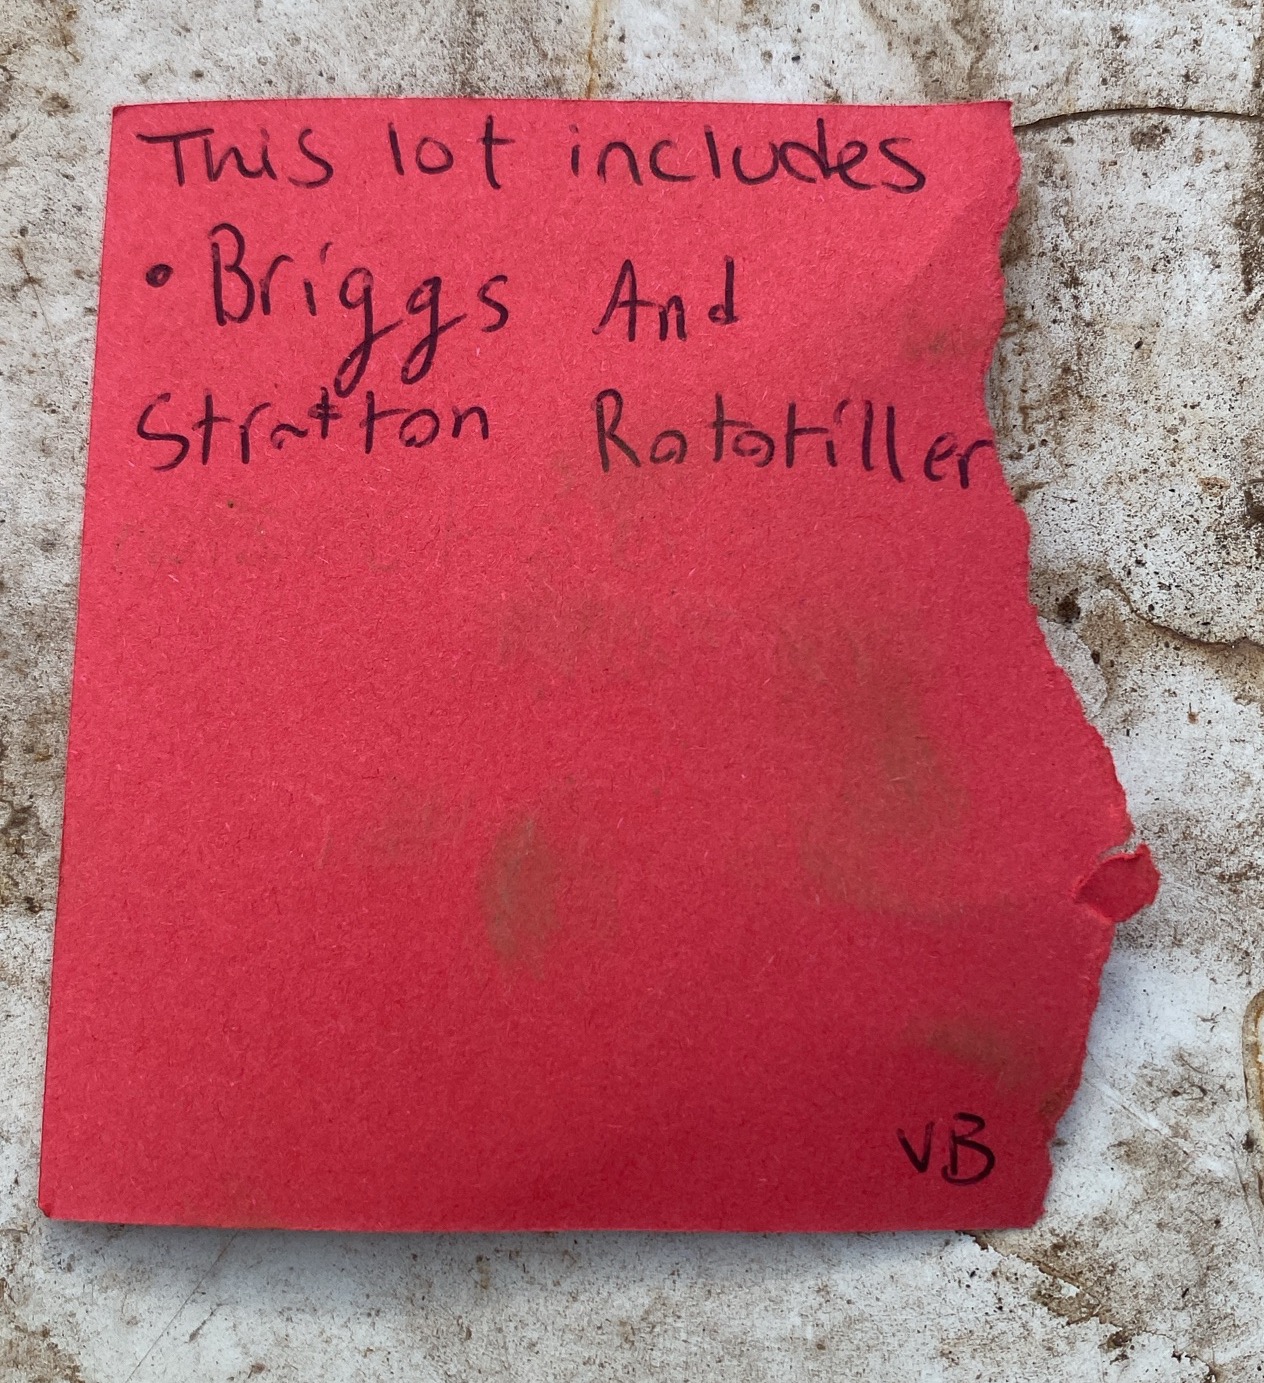 This lot includes
• Briggs And
Stratton Rototiller
VB